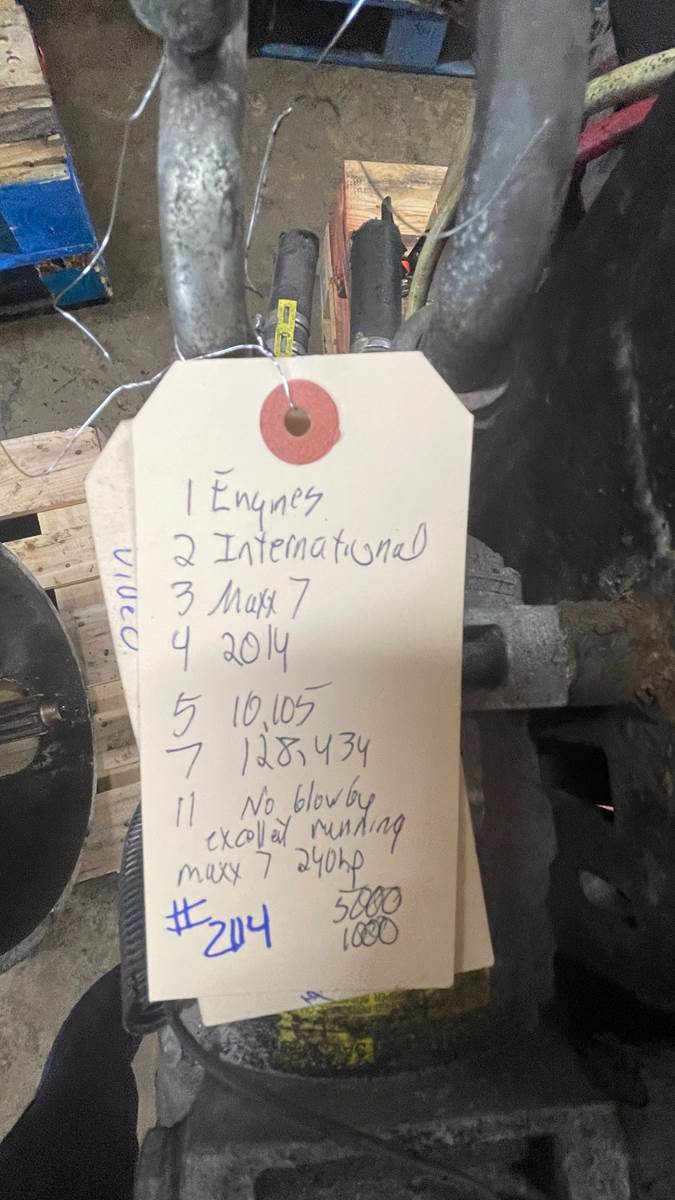 1 Engines
2 International
3 Maxx 7
4 2014
5 10,105
7 128,434
11 No blowby
excellet running
maxx 7 240hp
5000
# 204
1000
VIDEO